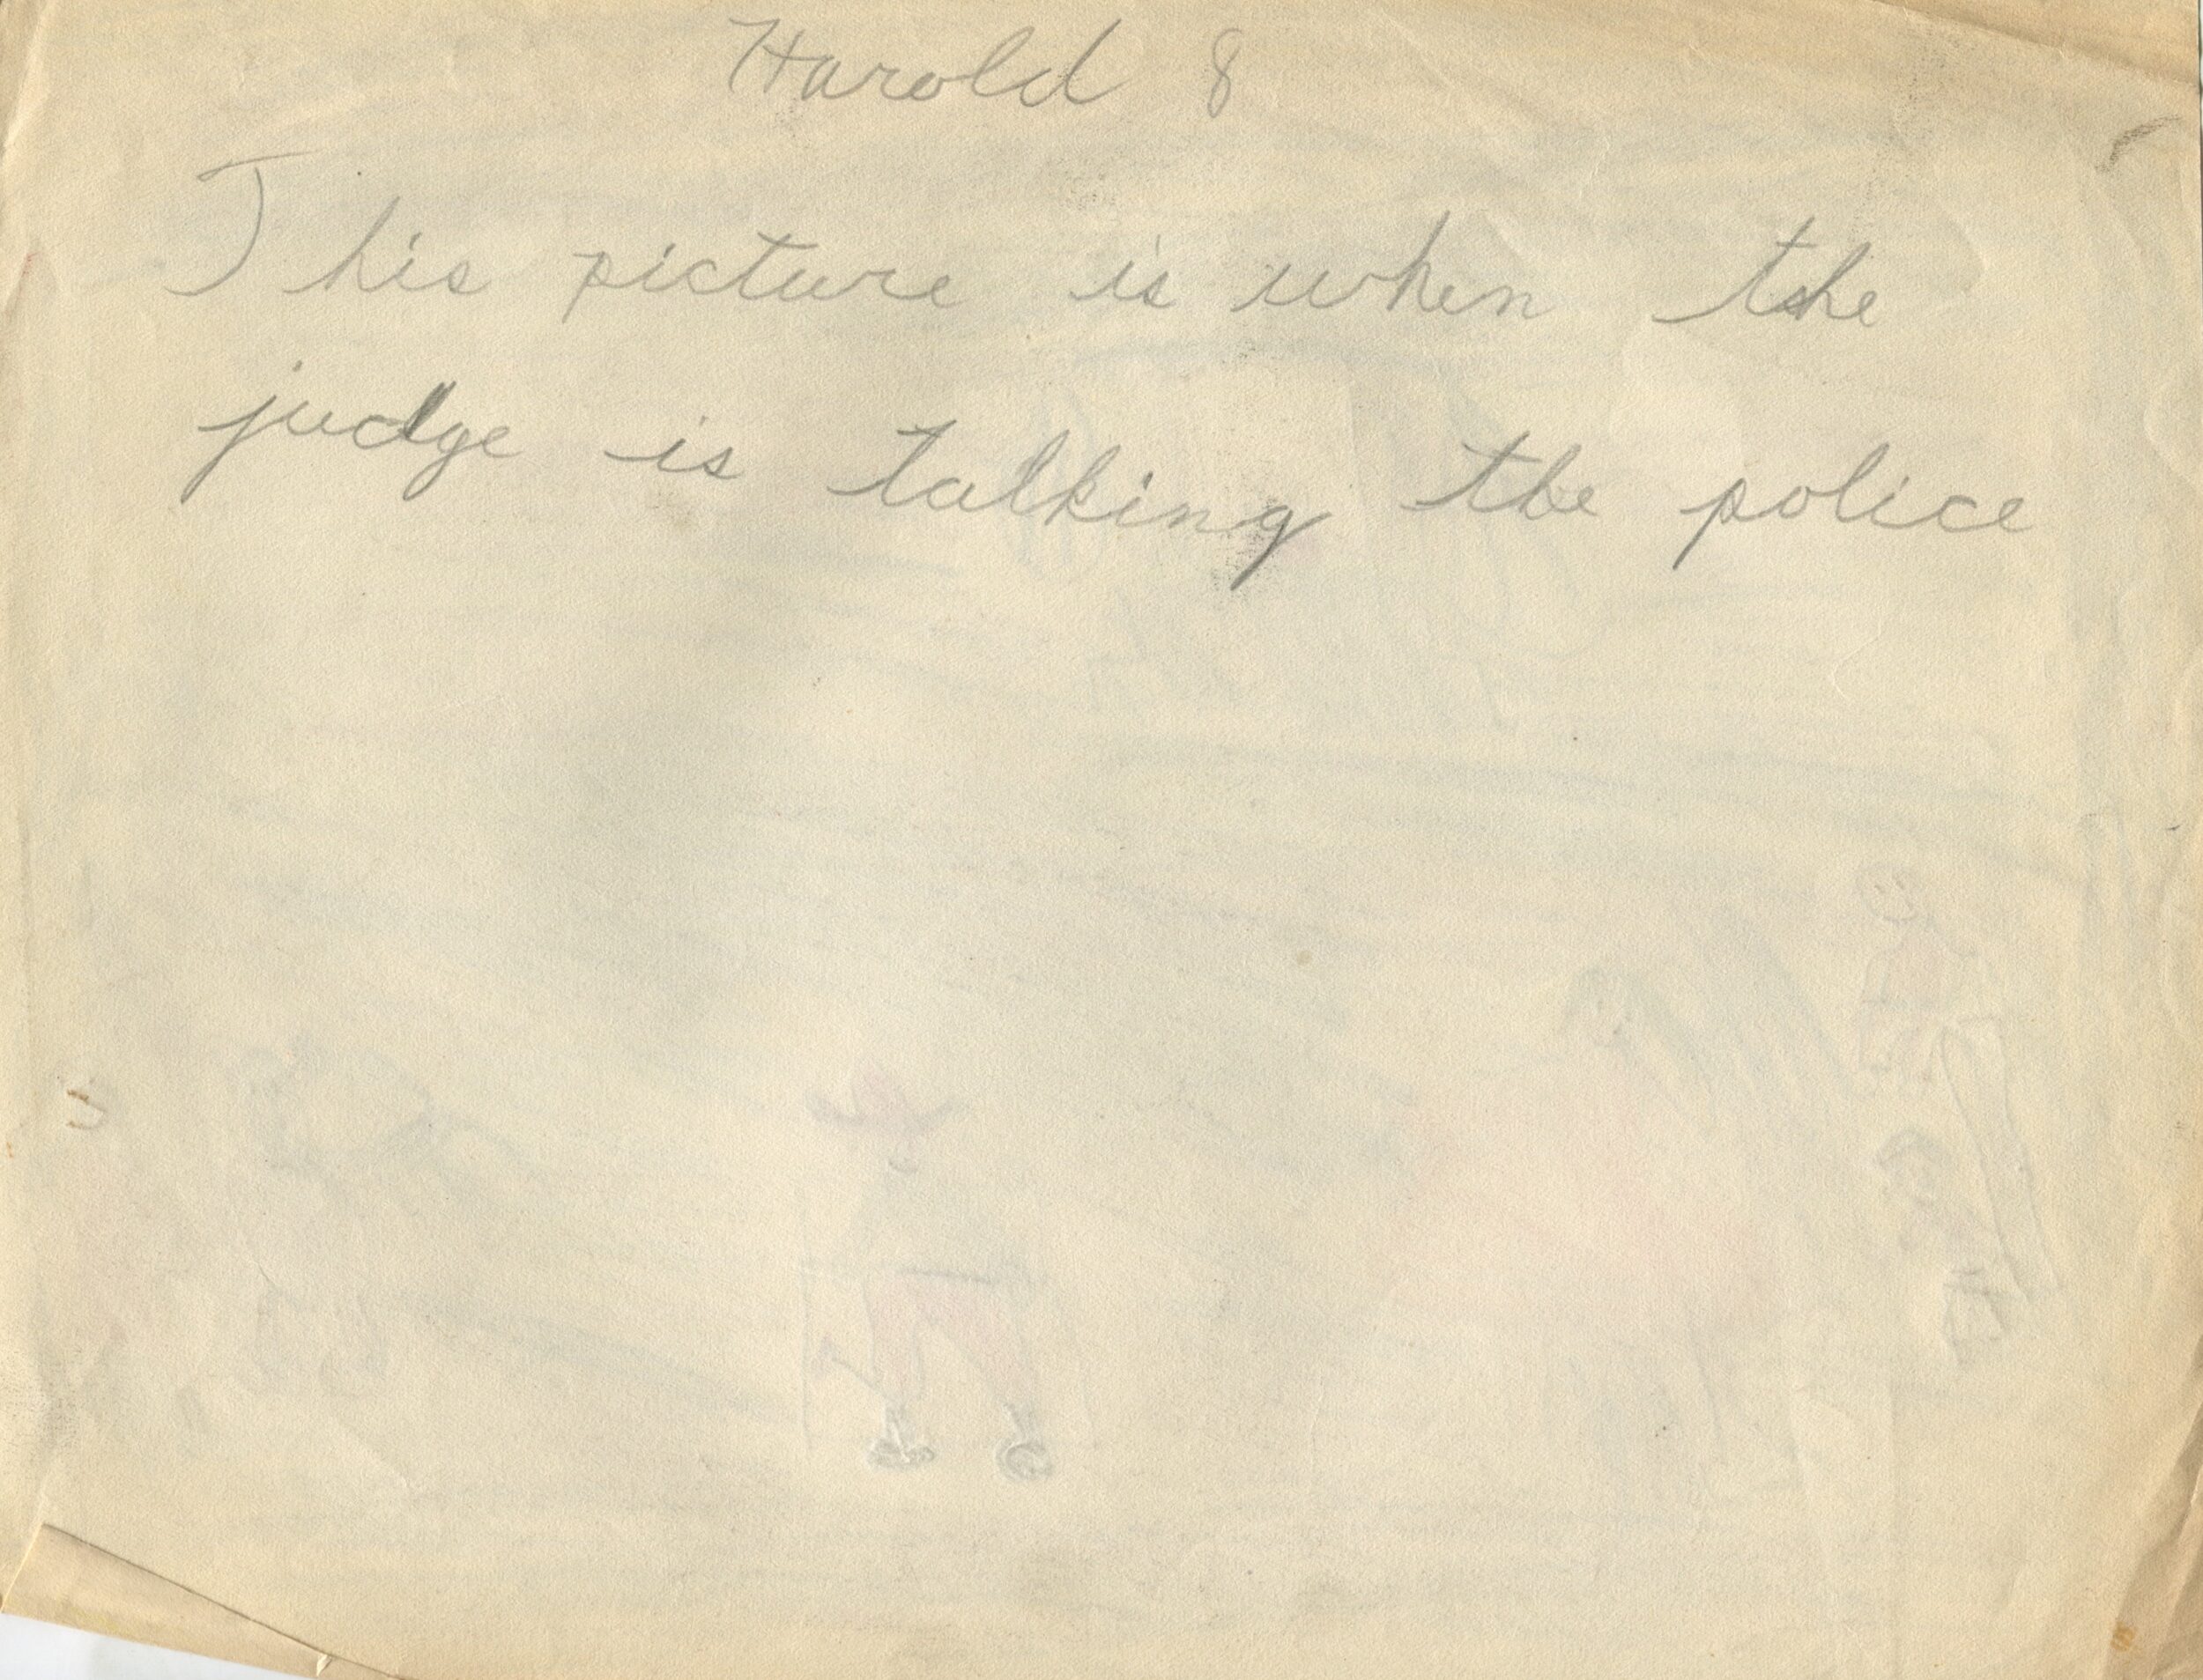 Harold 8
This picture is when the
judge is talking the police